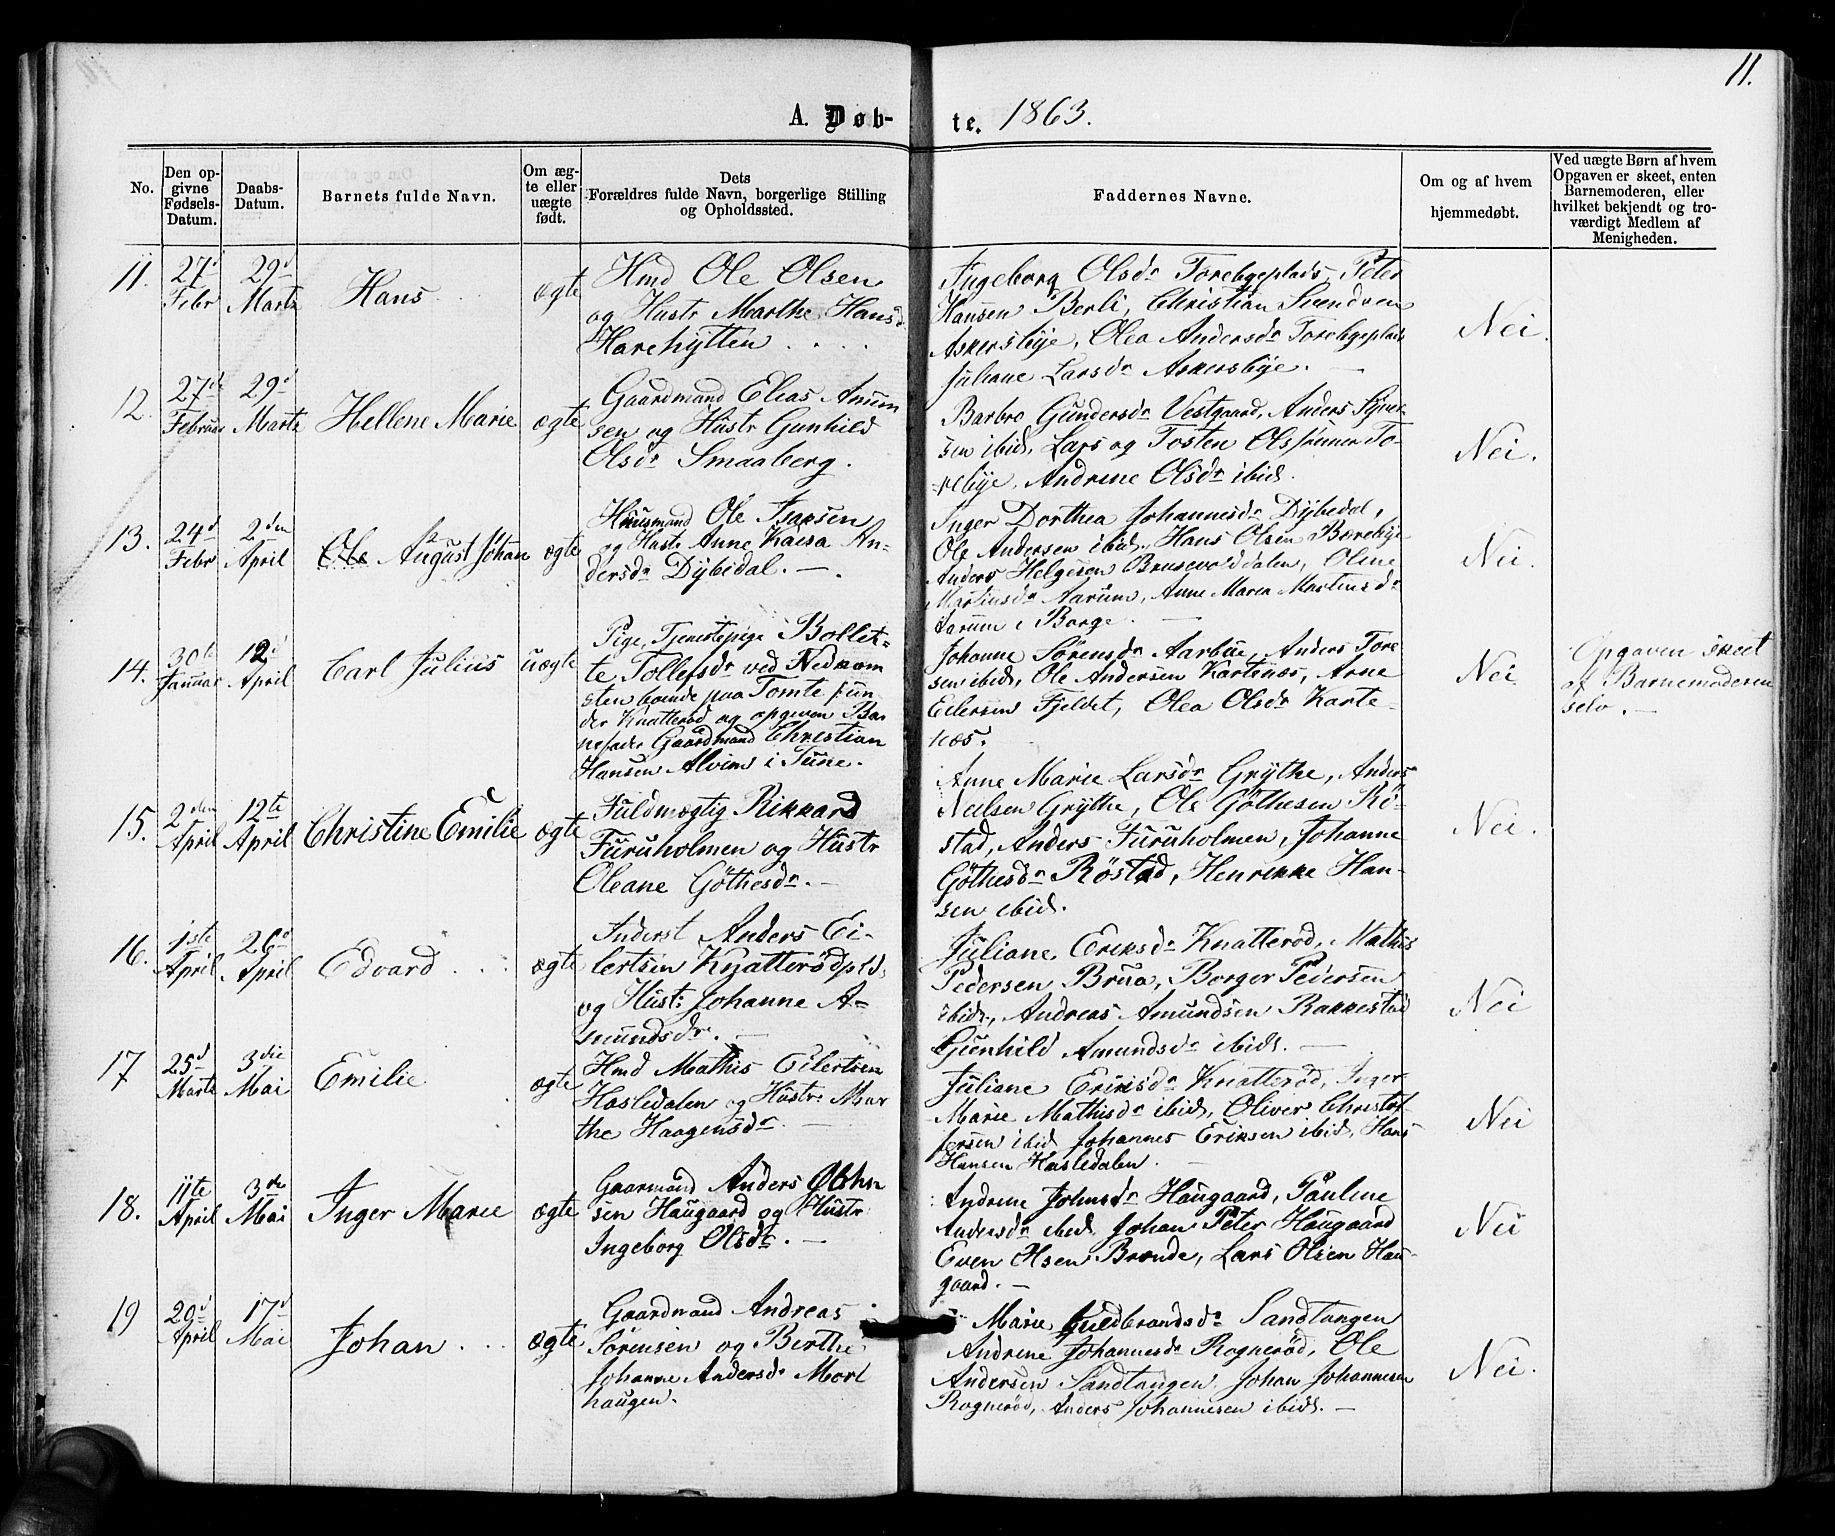 11.
A. Døb- te. 1863.
No.
Den op-
givne
Fødsels-
Datum.
Daabs-
Datum.
Barnets fulde Navn.
Om æg-
te eller
uægte
født.
Dets
Forældres fulde Navn, borgerlige Stilling
og Opholdssted.
Faddernes Navne.
Om og af hvem
hjemmedøbt.
Ved uægte Børn af hvem
Opgaven er skeet, enten
Barnemoderen, eller
hvilket bekjendt og tro-
værdigt Medlem af
Menigheden.
11.
27d
Febr
29d
Marts
Hans
ægte
Hmd Ole Olsen
og Hustr Marthe Hansd
Harehytten
Ingeborg Olsdr Torebyeplads, Peter
Hansen Berli, Christian Svendsen
Askersbye, Olea Andersdr Torebyeplads
Juliane Larsdr Askersbye.
Nei.
12.
27d
Februar
29d
Marts
Hellene Marie
ægte
Gaardmand Elias Amum
sen og Hustr Gunhild
Olsdr Smaaberg.
Barbro Gundersdr Vestgaard, Anders Syver-
sen ibid, Lars og Tosten Olssönner To-
rebye, Andrine Olsdr ibid.
Nei.
13.
24d
Febr
2den
April
Ole August Johan
ægte
Huusmand Ole Isaksen
og Hustr Anne Kaisa An-
dersdr Dybedal.
Inger Dorthea Johannesdr Dybedal,
Ole Andersen ibid, Hans Olsen Borebye
Anders Helgesen Brusevolddalen, Oline
Martinsdr Aarum, Anne Maren Martinsdr
Aarum i Borge.
Nei.
14.
30te
Januar
12d
April
Carl Julius
uægte
Pige, Tjenestepige Bollet-
te Tollefsdr ved Nedkom
sten boende paa Tomte un-
der Knatteröd og opgiven Bar
nefader Gaardmand Christian
Hansen Alvim i Tune.
Johanne Sörensdr Aarbue, Anders Tore
sen ibid, Ole Andersen Kartenæs, Arne
Eilersen Fjeldet, Olea Olsdr Karte-
næs.
Nei
Opgaven skeet
af Barnemoderen
selv.
15.
2den
April
12te
April
Christine Emilie
ægte
Fuldmægtig Rikkard
Furuholmen og Hustr
Oleane Göthesdr.
Anne Marie Larsdr Grythe, Anders
Neilsen Grythe, Ole Göthesen Rö-
stad, Anders Furuholmen, Johanne
Göthesdr Röstad, Henrikke Han-
sen ibid.
Nei.
16.
1ste
April
26d
April
Edvard
ægte
Inderst Anders Ei-
lertsen Knatterödpld
og Hustr: Johanne A-
mundsdr.
Juliane Eriksdr Knatteröd, Mathis
Pedersen Brua, Borger Pedersen
ibid, Andreas Amundsen Rakkestad
Gunhild Amundsdr ibid.
Nei
17
25d
Marts
3die
Mai
Emilie
ægte
Hmd Mathis Eilertsen
Hasledalen og Hustr Mar
the Haagensdr.
Juliane Eriksdr Knatteröd, Inger
Marie Mathisdr ibid, Oliver Christof
fersen ibid Johannes Eriksen ibid, Hans
Hansen Hasledalen
Nei
18.
11te
April
3die
Mai
Inger Marie
ægte
Gaarmand Anders
sen Haugaard og Hustr
Ingeborg Olsdr.
Andrine Johnsdr Haugaard, Pauline
Andersdr ibid Johan Peter Haugaard
Even Olsen Brönde, Lars Olsen Hau-
gaard.
Nei
19
20d
April
17d
Mai
Johan
ægte
Gaardmand Andreas
Sörensen og Berthe
Johanne Andersdr Mort
haugen.
Marie Guldbrandsdr Sandtangen
Andrine Johannesdr Rogneröd, Ole
Andersen Sandtangen, Johan Johannesen
Rogneröd, Anders Johannesen ibid.
Nei.